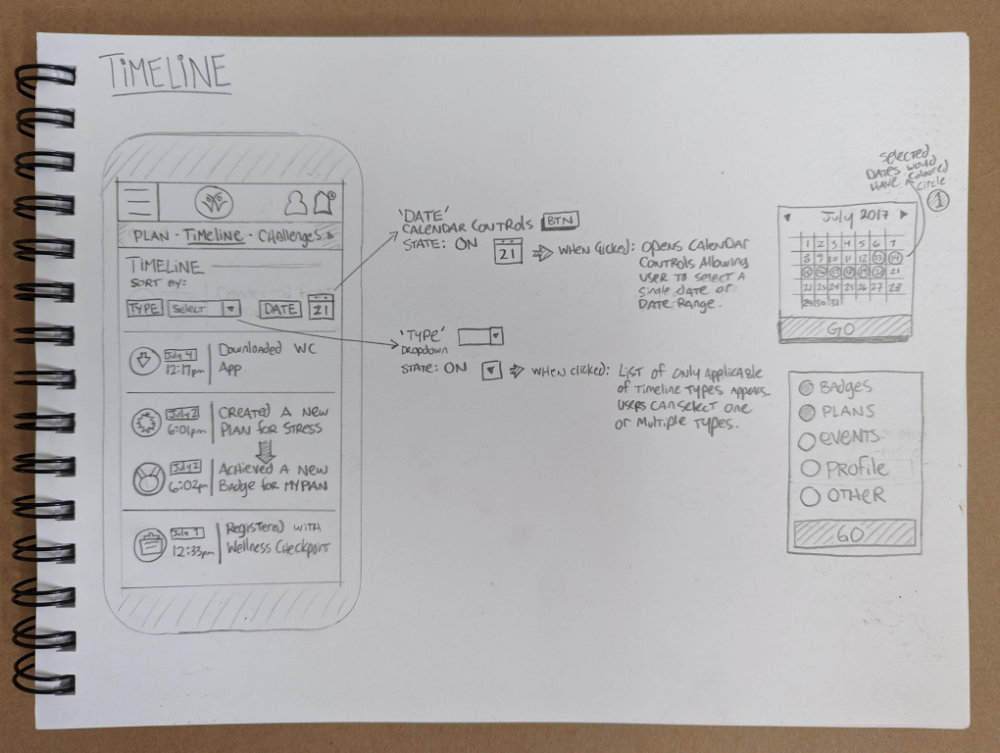 TiMELiNE
PLAN - TiMeLiNe - CHAllENGEs
TiMELiNE
SORT BY:
TYPE Select DATE 21
July 4
12:17pm
Downloaded WC
App
July 2
6:01pm
CREATED A NEW
PLAN FOR STRESS
July 2
6:02pm
ACHiEVED A NEW
BADGE FOR MYPLAN
July 1
12:33pm
REgisteRed WITH
Wellness CHeckpoint
'DATE'
CALENDAR CONTROLS BTN
STATE: ON 21
WHEN Clicked: OPENS CALENDAR
CONTROLS Allowing
USER TO SELECT A
Single DATE or
DATE RANGE.
'TYPE'
DROPDOWN
STATE: ON
WHEN clicked: List of ONLY APPlicABle
of Timeline TYPES APPEARS.
USERS CAN Select ONE
or Multiple TYPES.
SELECTED
DATES WOULD
HAVE A Coloured
Circle
1
July 2017
1 2 3 4 5 6 7
8 9 10 11 12 13 14
15 16 17 18 19 20 21
22 23 24 25 26 27 28
29 30 31
GO
BADGES
PLANS
EVENTS
PROfile
OTHER
GO